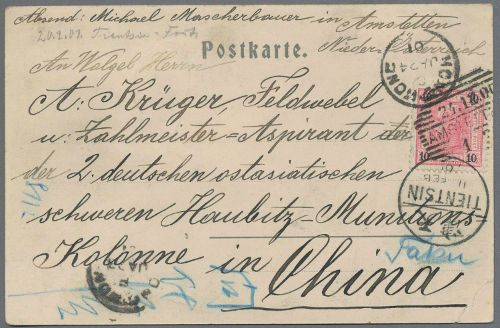 Absend: Michael Mascherbauer in Amstetten
Nieder-Österreich
Tientsin - Forts
Postkarte.
An Herrn
A. Krüger, Feldwebel
u: Zahlmeister=Aspirant der
der 2. deutschen ostasiatischen
schweren Haubitz-Munitions
Kolonne in China
Taku
HONG KONG
JA 24
01
10
10
TIENTSIN
FEB